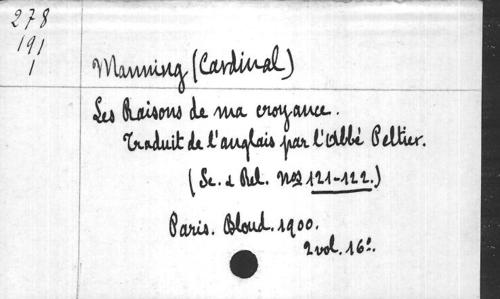 278
191
1
Manning (Cardinal)
Les Raisons de ma croyance.
Traduit de l'anglais par l'Abbé Peltier.
(Sc. & Rel. Nos 121-122.)
Paris. Bloud. 1900.
2 vol. 16º.